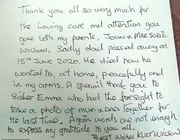 Thank you all so very much for
the loving care and attention you
gave both my parents, Joe & Marjorie
Sadly dad passed away on
15th June 2020. He died how he
wanted to, at home, peacefully and
in my arms. A special thank you to
Sister Emma who had the foresight to
take a photo of mum and dad together for
the last time. Again words are not enough
to express my gratitude to you all.
Best wishes